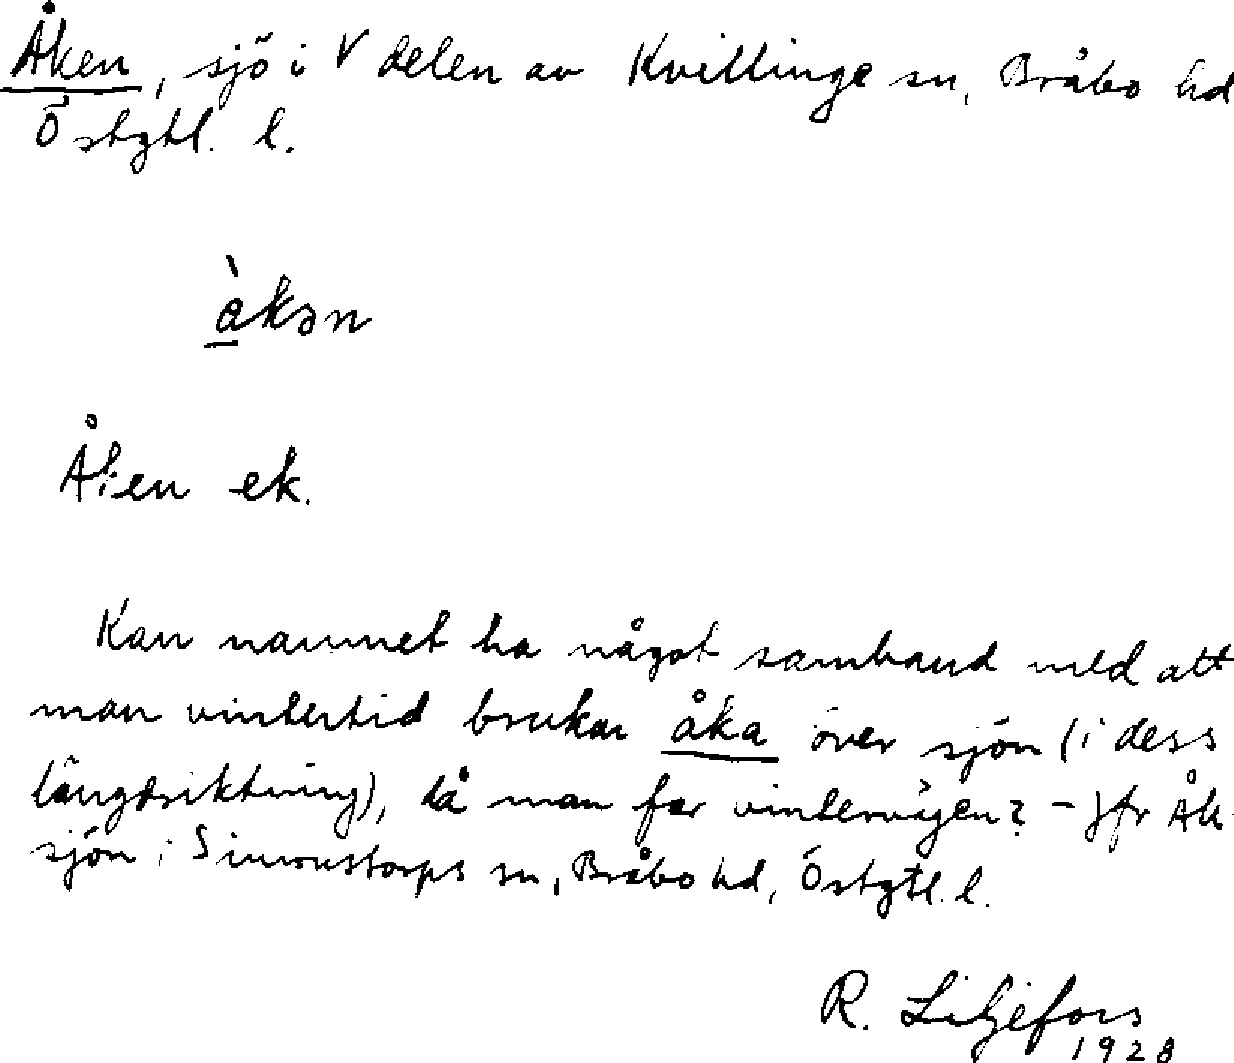 Åken, sjö i V delen av Kvillinge sn, Bråbo hd
Östgtl. l.
å̀kən
Åken ek.
Kan namnet ha något samband med att
man vintertid brukar åka över sjön (i dess
längdriktning), då man far vintervägen? - Jfr Åk-
sjön i Simonstorps sn, Bråbo hd, Östgtl. l.
R. Liljefors
1928